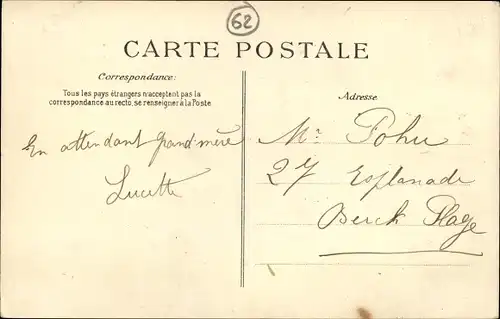 62
CARTE POSTALE
Correspondance:
Tous les pays étrangers n'acceptent pas la
correspondance au recto, se renseigner à la Poste.
Adresse
En attendant Grand'mère
Lucette
Mr Pohu
27 Esplanade
Berck Plage